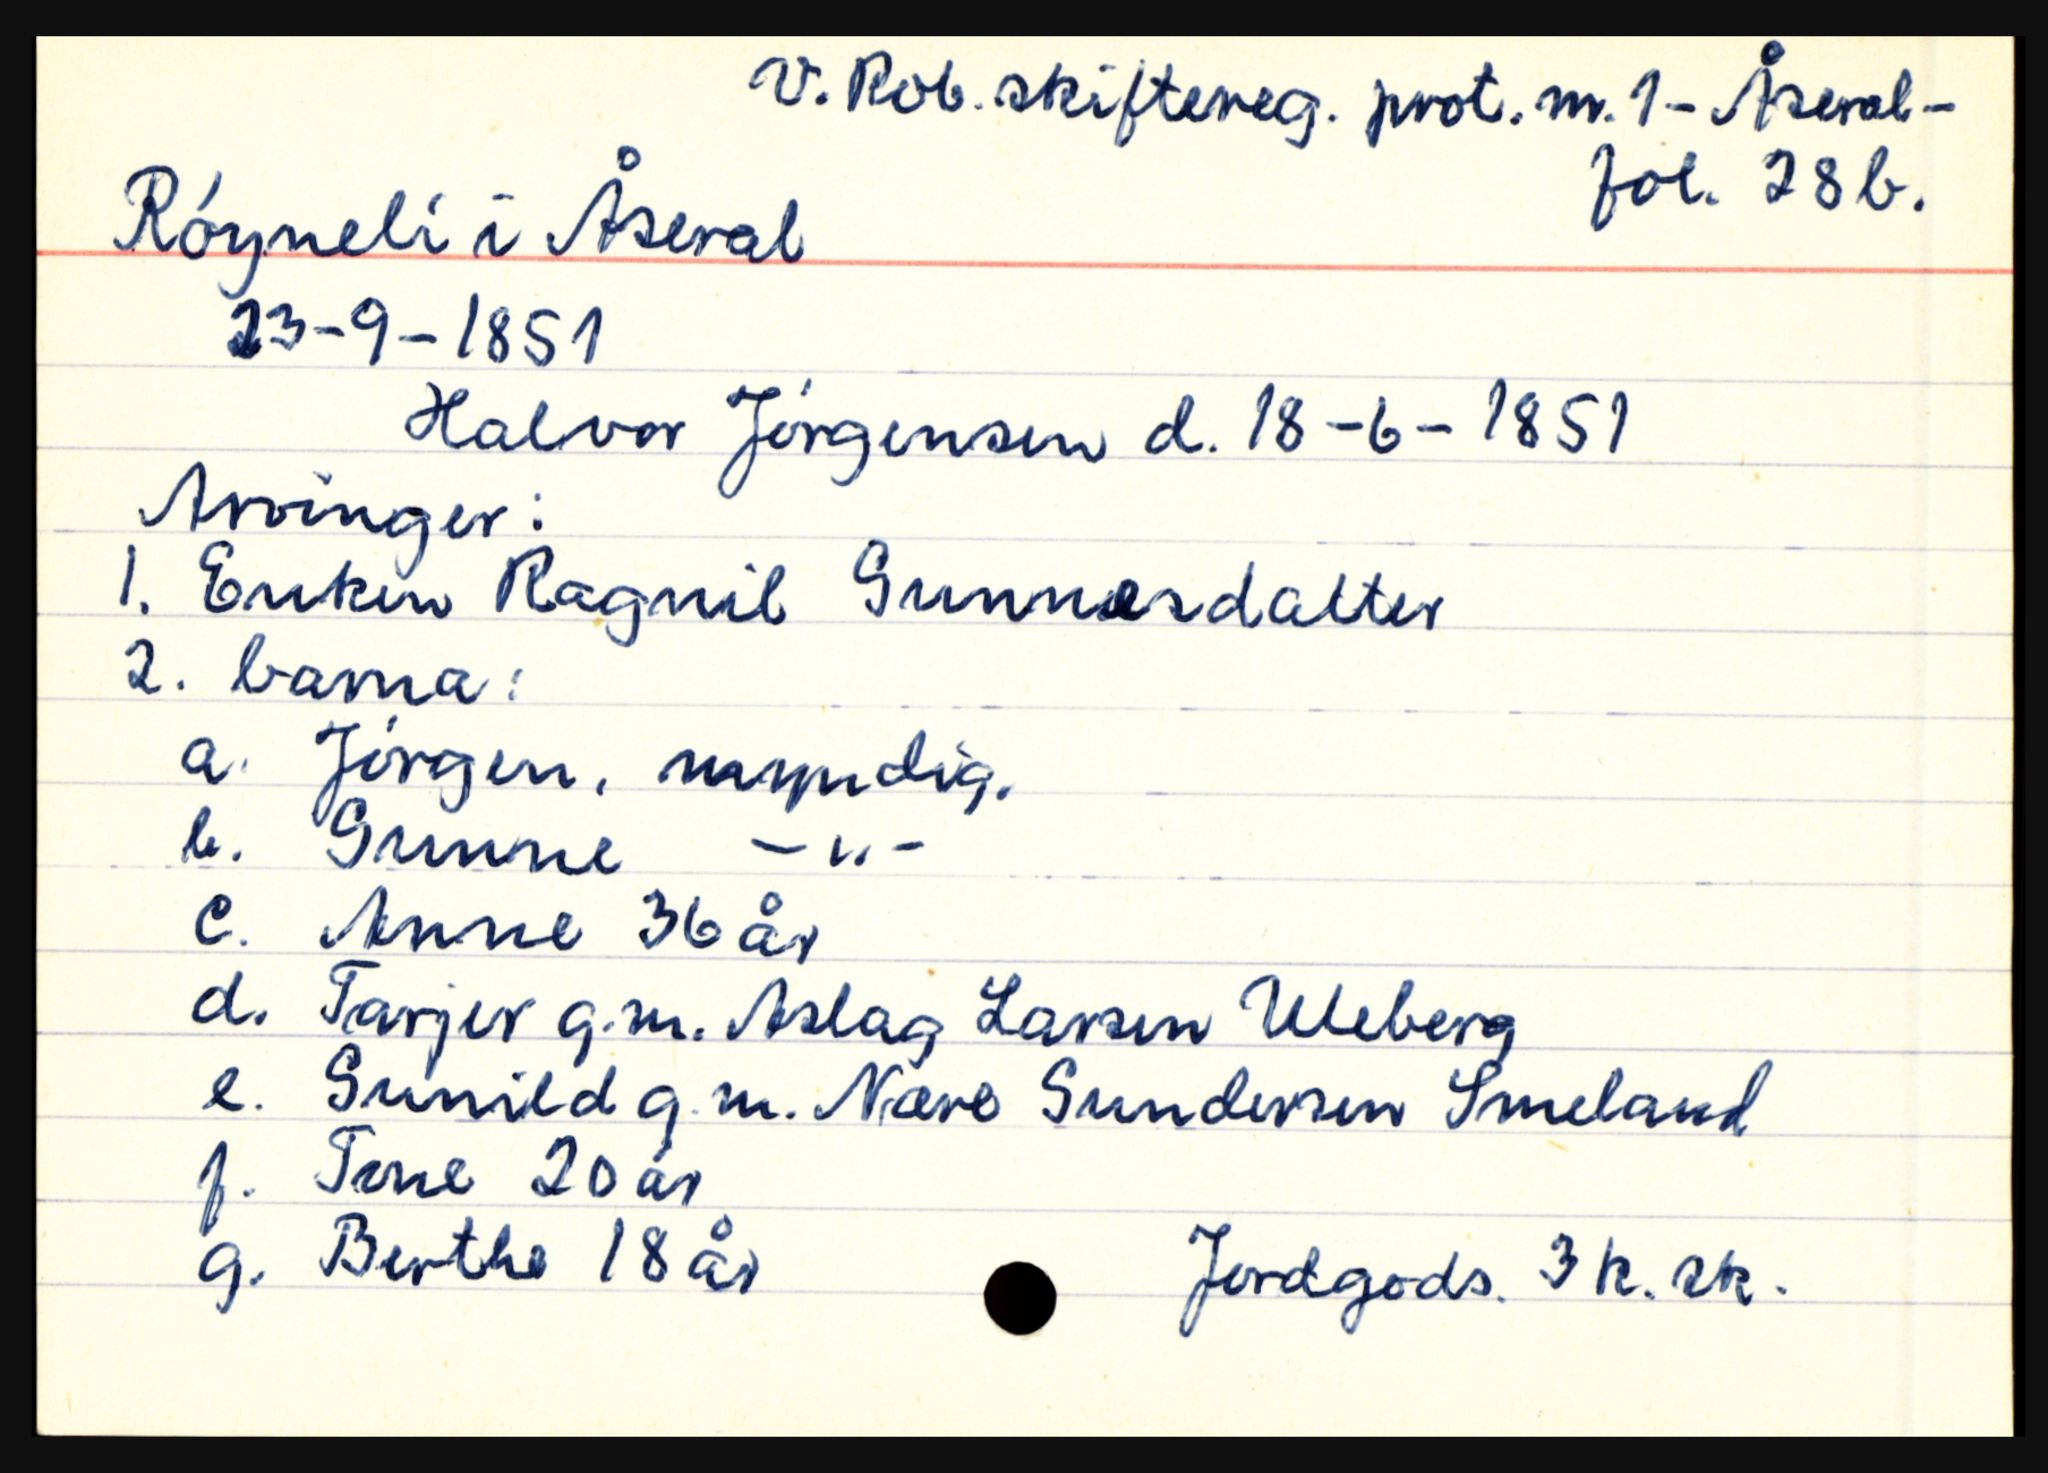 V. Rob. skiftereg. prot. nr. 1 - Åseral -
fol. 28b.
Róyneli i Åseral
23-9-1851
Halvor Jórgensen d. 18-6-1851
Arvinger:
1. Enken Ragnil Gunnesdatter
2. barna:
a. Jórgen, myndig.
b. Gunne -"-
c. Anne 36 år
d. Tarjer g.m. Aslag Larsen Uleberg
e. Gunild g.m. Nære Gundersen Smeland
f. Tone 20 år
g. Berthe 18 år
Jordgods. 3 k. sk.